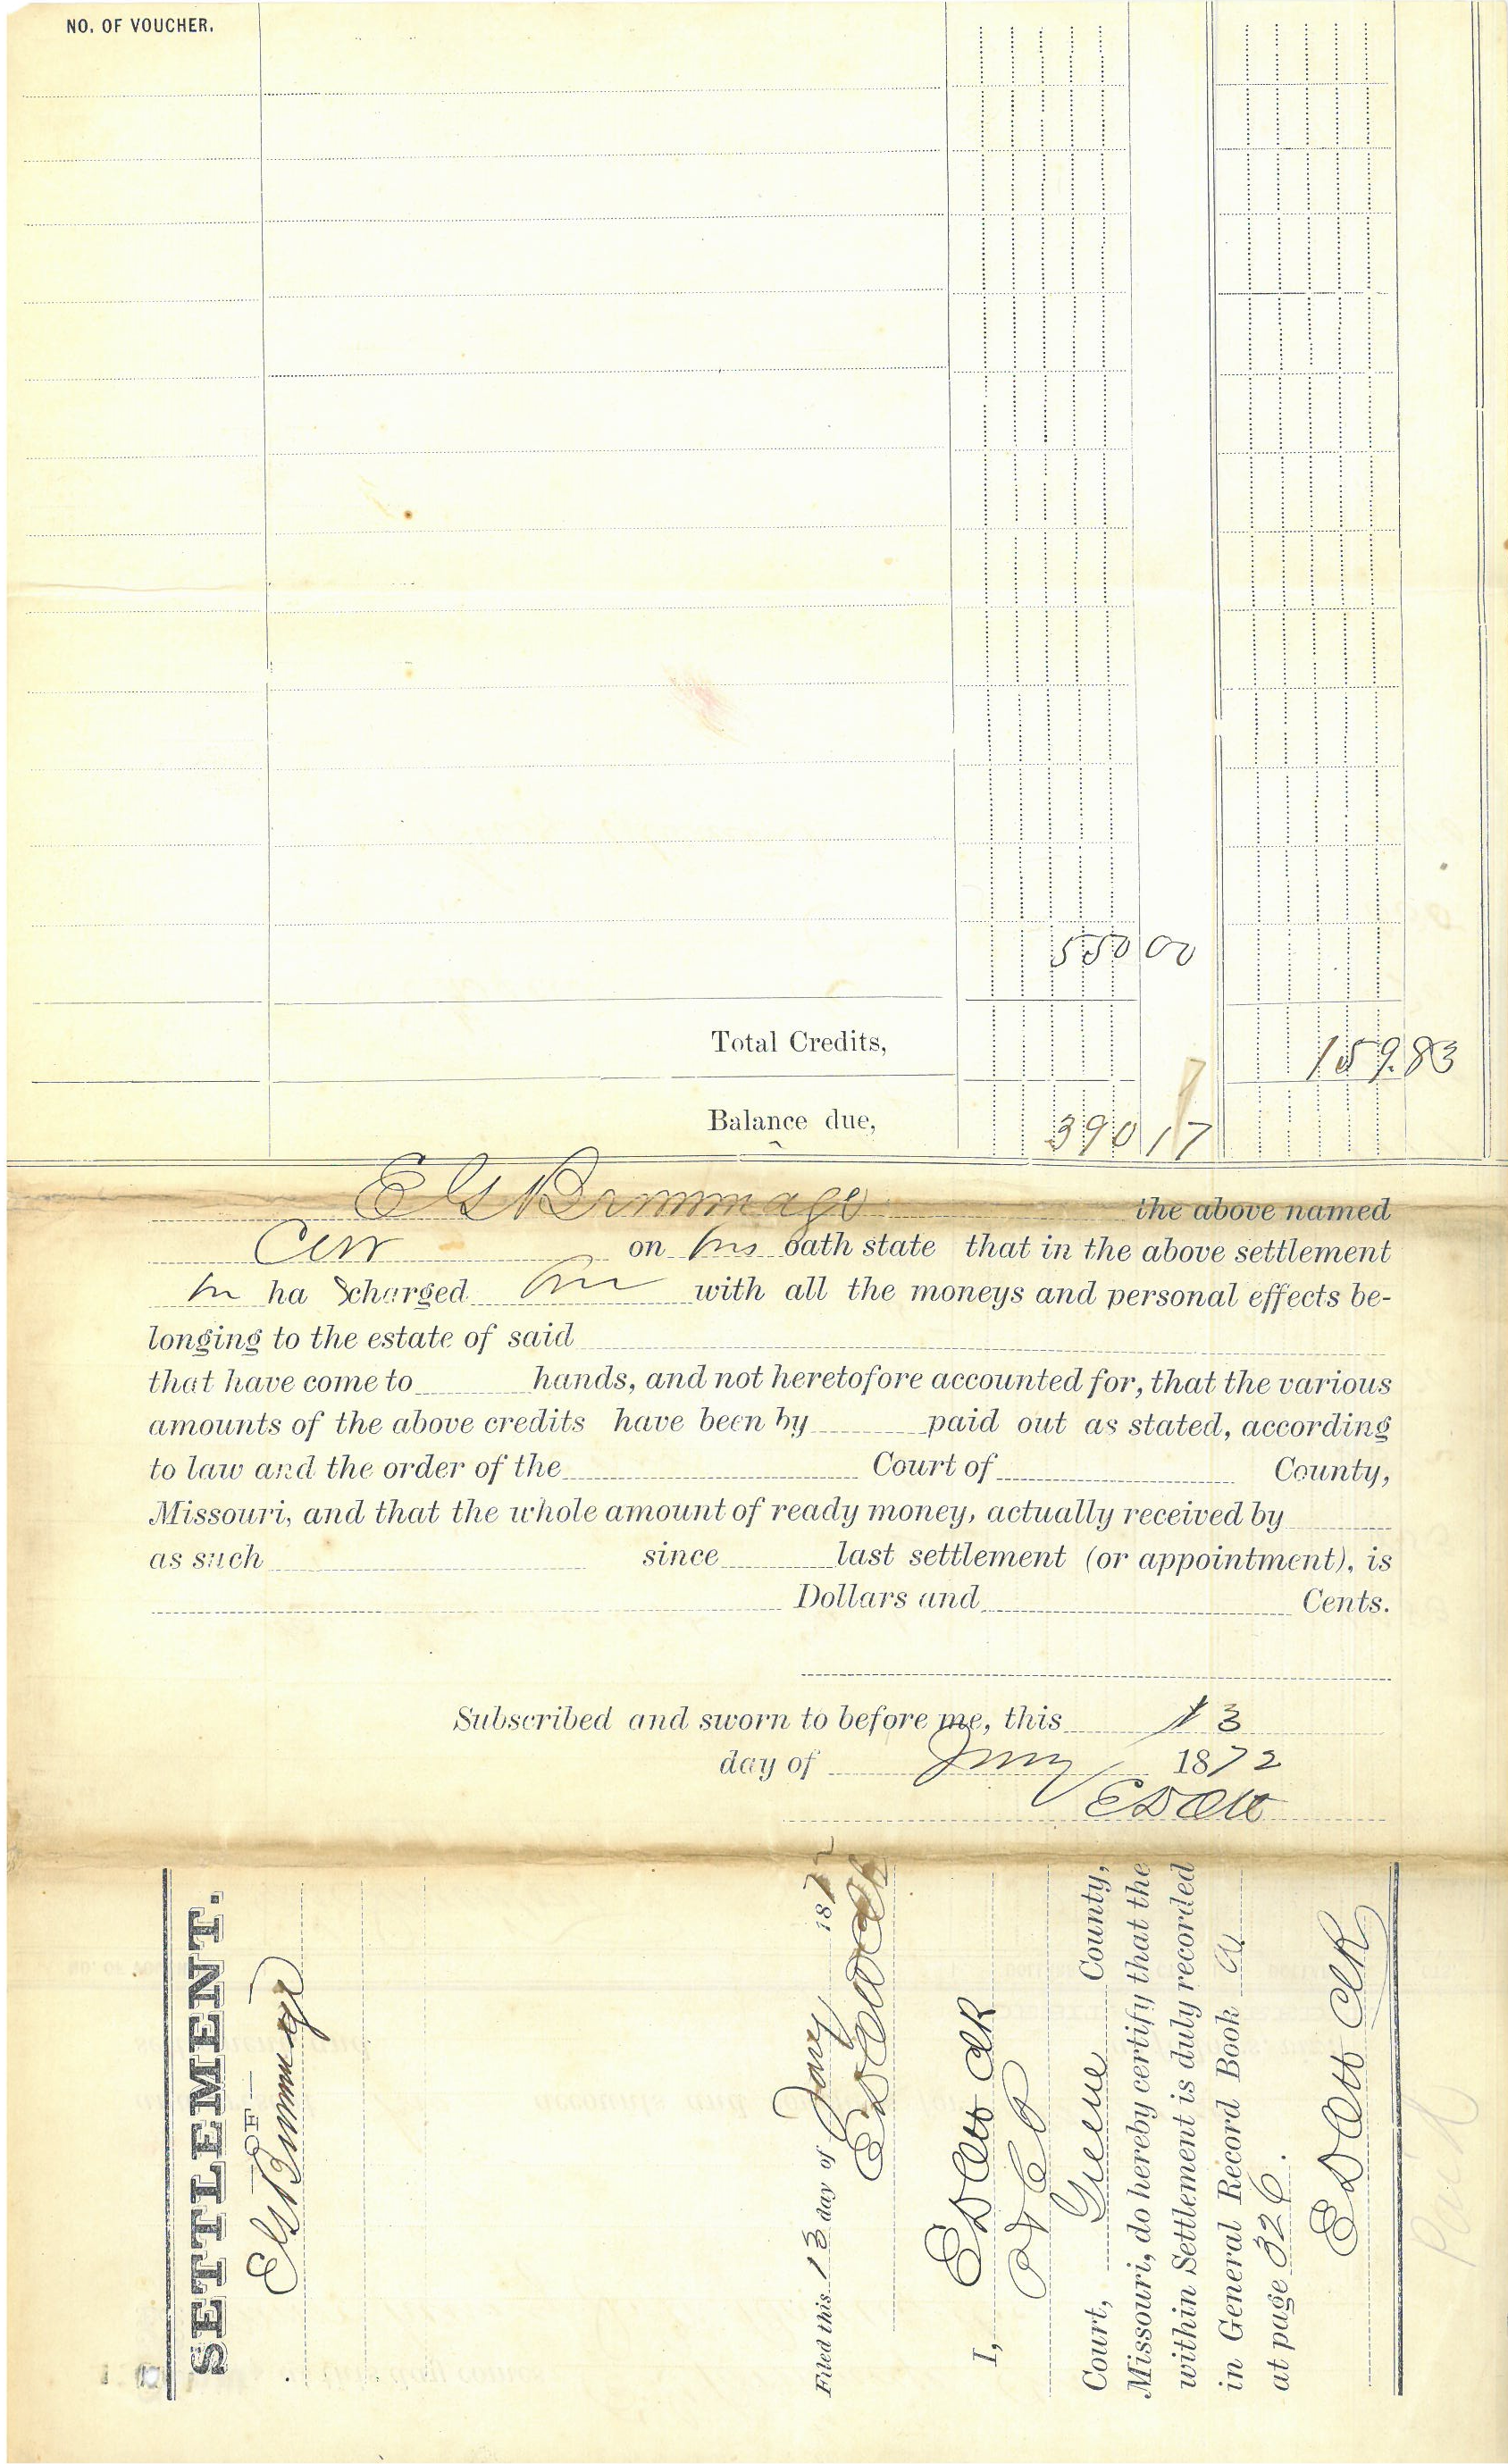 NO. OF VOUCHER.
550 00
Total Credits, 159.83
Balance due, 390 17
E G Brimmage the above named
on his oath state that in the above settlement
he ha s charged him with all the moneys and personal effects be-
longing to the estate of said
that have come to hands, and not heretofore accounted for, that the various
amounts of the above credits have been by paid out as stated, according
to law and the order of the Court of County,
Missouri, and that the whole amount of ready money, actually received by
as such since last settlement (or appointment), is
Dollars and Cents.
Subscribed and sworn to before me, this 13
day of Jany 1872
E D Ott
SETTLEMENT.
—OF—
E G Brimmage
Filed this 13 day of Jany 1872
E D Ott Clk
I, E D Ott Clk
Court, Greene County,
Missouri, do hereby certify that the
within Settlement is duly recorded
in General Record Book A
at page 326.
E D Ott Clk